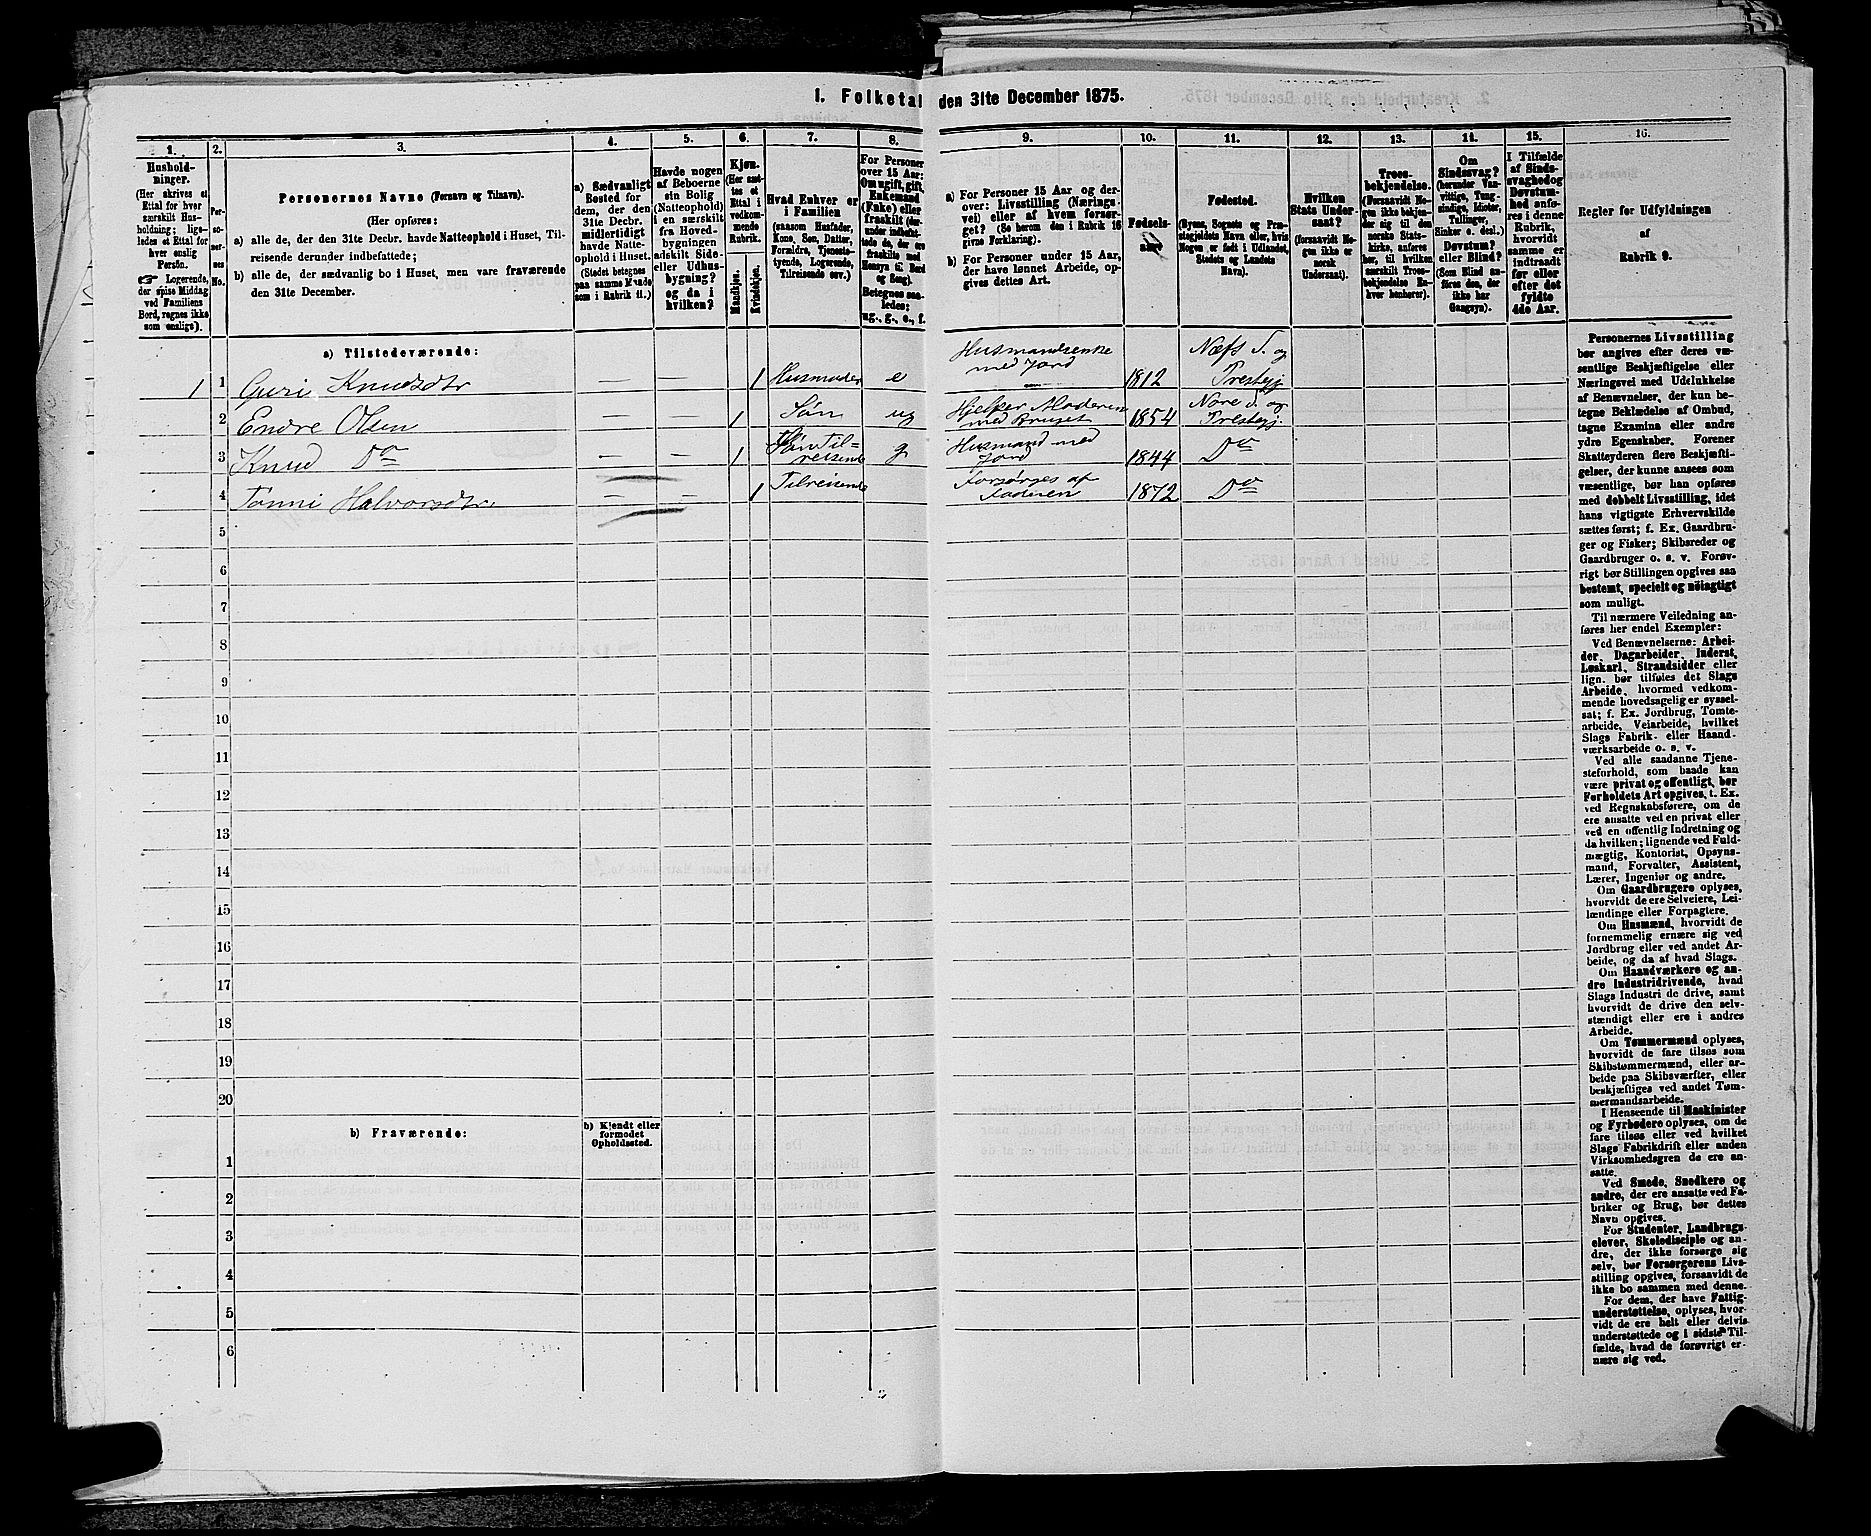 1. Folketal den 31te December 1875.
1. 2. 3. 4. 5. 6. 7. 8. 9. 10. 11. 12. 13. 14. 15. 16.
Hushold-
ninger.
(Her skrives et
Ettal for hver
særskilt Hus-
holdning; lige-
ledes et Ettal for
hver enslig
Person.
☞ Logerende,
der spise Middag
ved Familiens
Bord, regnes ikke
som enslige).
Per-
so-
ner-
nes
No.
Personernes Navne (Fornavn og Tilnavn).
(Her opføres:
a) alle de, der den 31te Decbr. havde Natteophold i Huset, Til-
reisende derunder indbefattede;
b) alle de, der sædvanlig bo i Huset, men vare fraværende
den 31te December.
a) Sædvanligt
Bosted for
dem, der den
31te Decbr.
midlertidigt
havde Natte-
ophold i Huset.
(Stedet betegnes
paa samme Maade
som i Rubrik 11.)
Havde nogen
af Beboerne
sin Bolig
(Natteophold)
i en særskilt
fra Hoved-
bygningen
adskilt Side-
eller Udhus-
bygning?
og da i
hvilken?
Kjøn.
(Her sæt-
tes et
Ettal i
vedkom-
mende
Rubrik.
Mandkjøn.
Kvindekjøn.
Hvad Enhver er
i Familien
(saasom Husfader,
Kone, Søn, Datter,
Forældre, Tjeneste-
tyende, Logerende,
Tilreisende osv.)
For Personer
over 15 Aar:
Om ugift, gift,
Enkemand
(Enke) eller
fraskilt (der-
under indbefat-
tede de, der ere
fraskilte med
Hensyn til Bord
og Seng).
Betegnes saa-
ledes:
ug., g., e., f.
a) For Personer 15 Aar og der-
over: Livsstilling (Nærings-
vei) eller af hvem forsør-
get? (Se herom den i Rubrik 16
givne Forklaring).
b) For Personer under 15 Aar,
der have lønnet Arbeide, op-
gives dettes Art.
Fødsels-
aar
Fødested.
(Byens, Sognets og Præ-
stegjeldets Navn eller, hvis
Nogen er født i Udlandet,
Stedets og Landets
Navn).
Hvilken
Stats Under-
saat?
(forsaavidt No-
gen ikke er
norsk
Undersaat).
Troes-
bekjendelse.
(Forsaavidt No-
gen ikke bekjen-
der sig til den
norske Stats-
kirke, anføres
her, til hvilken
særskilt Troes-
bekjendelse En-
hver henhører).
Om
Sindssvag?
(herunder Van-
vittige, Tung-
sindige, Idioter,
Tullinger,
Sinker o. desl.)
Døvstum?
eller Blind?
(Som Blind an-
føres den, der
ikke har
Gangsyn).
I Tilfælde
af Sinds-
svaghed og
Døvstum-
hed anfø-
res i denne
Rubrik,
hvorvidt
samme er
indtraadt
før eller
efter det
fyldte
4de Aar.
Regler for Udfyldningen
af
Rubrik 9.
a) Tilstedeværende:
1 1 Guri Knudsdtr — — 1 Husmoder e Husmandsenke med Jord 1812 Næss S. og Prestegj
2 Endre Olsen — — 1 Søn ug Hjelper Moderen med Bruget 1854 Nore S. og Prestegj.
3 Knud Do — — 1 Søn Til-reisende g Husmand med Jord 1844 Do
4 Tonni Halvorsdtr. — — 1 Tilreisende Forsørges af Faderen 1872 Do
5
6
7
8
9
10
11
12
13
14
15
16
17
18
19
20
b) Fraværende:
b) Kjendt eller
formodet
Opholdssted.
1
2
3
4
5
6
Personernes Livsstilling
bør angives efter deres væ-
sentlige Beskjæftigelse eller
Næringsvei med Udelukkelse
af Benævnelser, der kun be-
tegne Beklædelse af Ombud,
tagne Examina eller andre
ydre Egenskaber. Forener
Skatteyderen flere Beskjæfti-
gelser, der kunne ansees som
væsentlige, bør han opføres
med dobbelt Livsstilling, idet
hans vigtigste Erhvervskilde
sættes først; f. Ex. Gaardbru-
ger og Fisker; Skibsreder og
Gaardbruger o. s. v. Forøv-
rigt bør Stillingen opgives saa
bestemt, specielt og nøiagtigt
som muligt.
Til nærmere Veiledning an-
føres her endel Exempler:
Ved Benævnelserne: Arbei-
der, Dagarbeider, Inderst,
Løskarl, Strandsidder eller
lign. bør tilføies det Slags
Arbeide, hvormed vedkom-
mende hovedsagelig er syssel-
sat; f. Ex. Jordbrug, Tomte-
arbeide, Veiarbeide, hvilket
Slags Fabrik- eller Haand-
værksarbeide o. s. v.
Ved alle saadanne Tjene-
steforhold, som baade kan
være privat og offentligt, bør
Forholdets Art opgives, t. Ex.
ved Regnskabsførere, om de
ere ansatte ved en privat eller
ved en offentlig Indretning og
da hvilken; lignende ved Fuld-
mægtig, Kontorist, Opsyns-
mand, Forvalter, Assistent,
Lærer, Ingeniør og andre.
Om Gaardbrugere oplyses,
hvorvidt de ere Selveiere, Lei-
lændinge eller Forpagtere.
Om Husmænd, hvorvidt de
fornemmelig ernære sig ved
Jordbrug eller ved andet Ar-
beide, og da af hvad Slags.
Om Haandværkere og an-
dre Industridrivende, hvad
Slags Industri de drive, samt
hvorvidt de drive den selv-
stændigt eller ere i andres
Arbeide.
Om Tømmermænd oplyses,
hvorvidt de fare tilsøs som
Skibstømmermænd, eller ar-
beide paa Skibsværfter, eller
beskjæftiges ved andet Tøm-
mermandsarbeide.
I Henseende til Maskinister
og Fyrbødere oplyses, om de
fare tilsøs eller ved hvilket
Slags Fabrikdrift eller anden
Virksomhedsgren de ere an-
satte.
Ved Smede, Snedkere og
andre, der ere ansatte ved Fa-
briker og Brug, bør dettes
Navn opgives.
For Studenter, Landbrugs-
elever, Skoledisciple og an-
dre, der ikke forsørge sig
selv, bør Forsørgerens Livs-
stilling opgives, forsaavidt de
ikke bo sammen med denne.
For dem, der have Fattig-
understøttelse, oplyses, hvor-
vidt de ere helt eller delvis
understøttede og i sidste Til-
fælde, hvad de forøvrigt er-
nære sig ved.